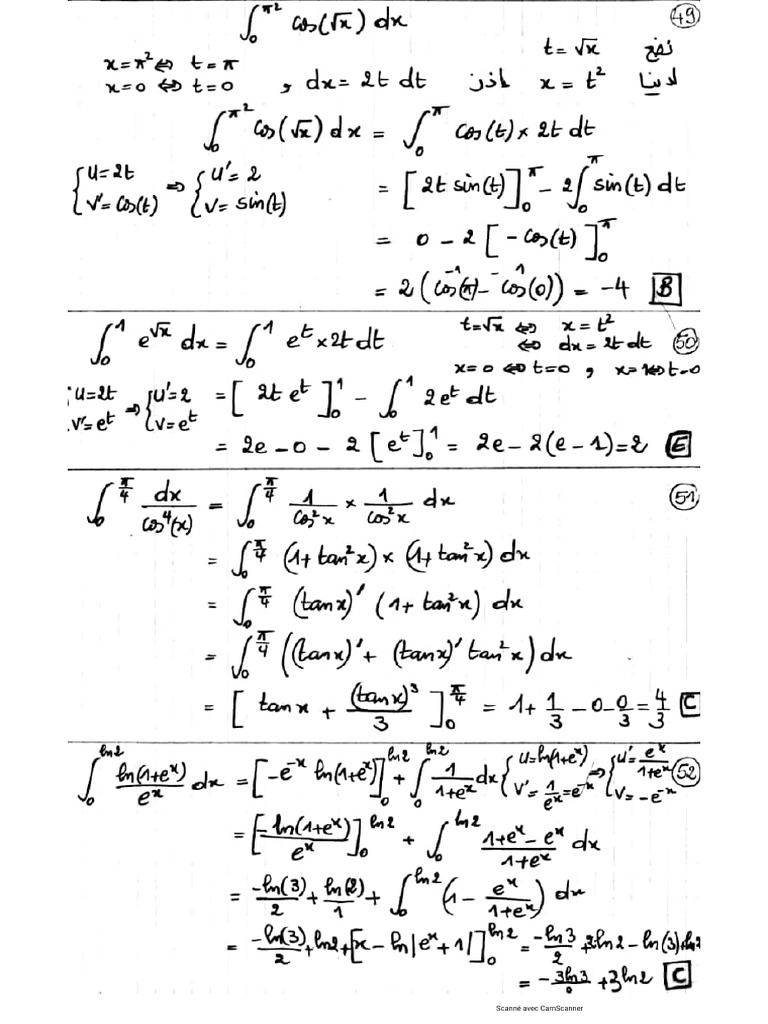 ∫₀^π² cos(√x) dx (49)
نضع t = √x
x = π² ⇔ t = π
لدينا x = t² إذن dx = 2t dt ,
x = 0 ⇔ t = 0
∫₀^π² cos(√x) dx = ∫₀^π cos(t) × 2t dt
{u = 2t, v' = cos(t) ⇒ {u' = 2, v = sin(t) = [2t sin(t)]₀^π − 2∫₀^π sin(t) dt
= 0 − 2[−cos(t)]₀^π
= 2(cos(π) − cos(0)) = −4 B
∫₀¹ e^√x dx = ∫₀¹ e^t × 2t dt t = √x ⇔ x = t² (50)
⇔ dx = 2t dt
x = 0 ⇔ t = 0 ,
{u = 2t, v' = e^t ⇒ {u' = 2, v = e^t = [2t e^t]₀¹ − ∫₀¹ 2e^t dt
= 2e − 0 − 2[e^t]₀¹ = 2e − 2(e − 1) = 2 E
∫₀^π/4 dx/cos⁴(x) = ∫₀^π/4 1/cos²x × 1/cos²x dx (51)
= ∫₀^π/4 (1 + tan²x) × (1 + tan²x) dx
= ∫₀^π/4 (tan x)' (1 + tan²x) dx
= ∫₀^π/4 ((tan x)' + (tan x)' tan²x) dx
= [tan x + (tan x)³/3]₀^π/4 = 1 + 1/3 − 0 − 0/3 = 4/3 C
∫₀^ln2 ln(1+e^x)/e^x dx = [−e^−x ln(1+e^x)]₀^ln2 + ∫₀^ln2 1/(1+e^x) dx {u = ln(1+e^x), v' = 1/e^x = e^−x ⇒ {u' = e^x/(1+e^x), v = −e^−x (52)
= [−ln(1+e^x)/e^x]₀^ln2 + ∫₀^ln2 (1+e^x−e^x)/(1+e^x) dx
= −ln(3)/2 + ln(2)/1 + ∫₀^ln2 (1 − e^x/(1+e^x)) dx
= −ln(3)/2 + ln2 + [x − ln|e^x + 1|]₀^ln2 = −ln3/2 + 2ln2 − ln(3) + ln2
= −3ln3/ + 3ln2 C
Scanné avec CamScanner